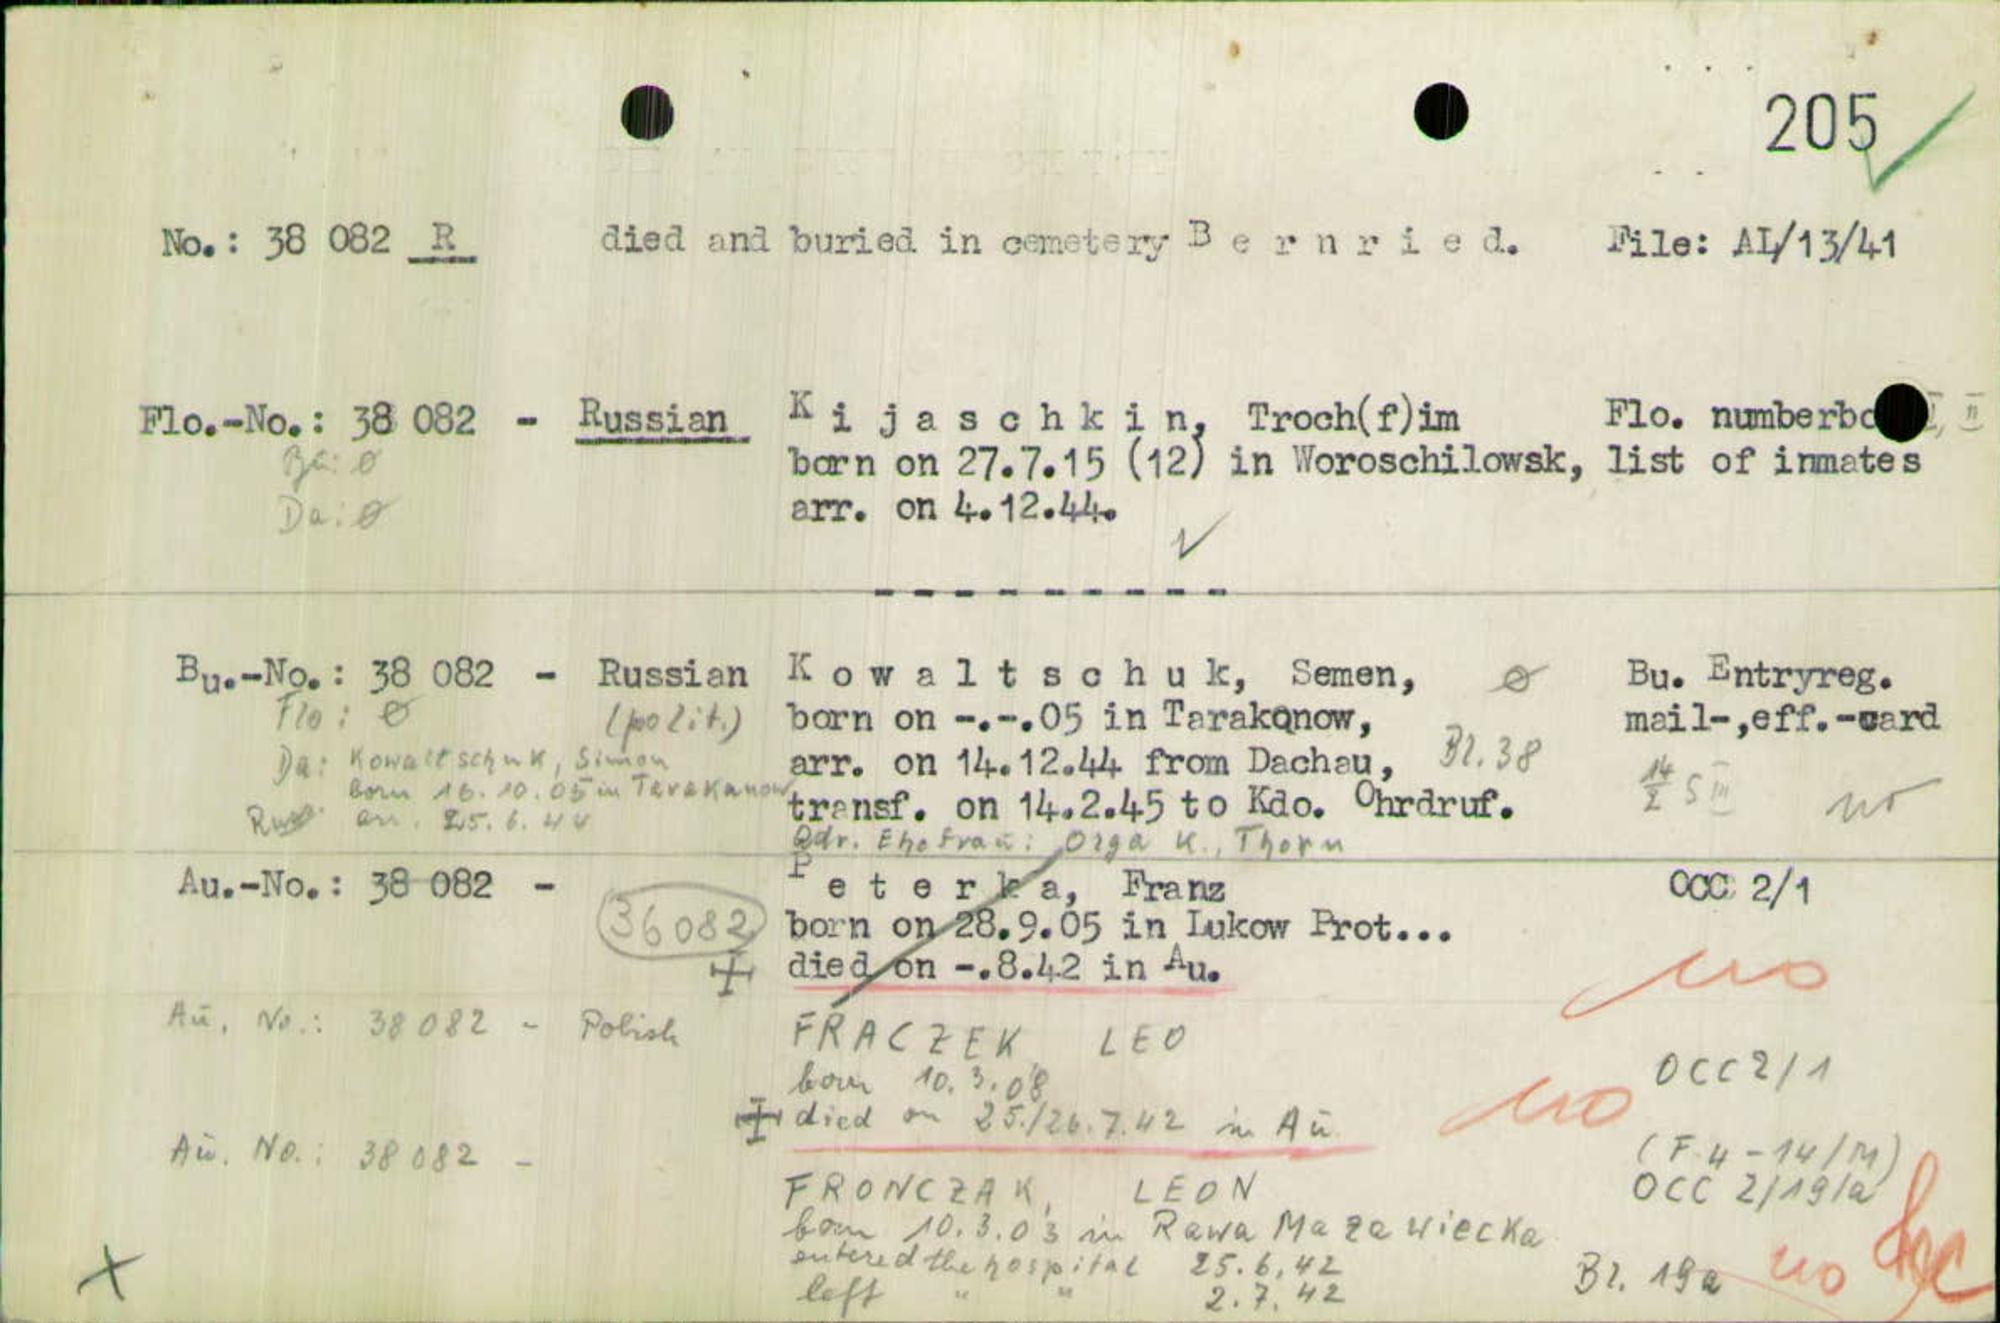 205
No.: 38 082 R died and buried in cemetery B e r n r i e d. File: AL/13/41
Flo.-No.: 38 082 - Russian K i j a s c h k i n, Troch(f)im Flo. numberbo I, II
Bu: ø born on 27.7.15 (12) in Woroschilowsk, list of inmates
Da: ø arr. on 4.12.44.
- - - - - - - - -
Bu.-No.: 38 082 - Russian K o w a l t s c h u k, Semen, ø Bu. Entryreg.
Flo: ø (polit.) born on -.-.05 in Tarakanow, mail-,eff.-card
Da: Kowaltschuk, Simon arr. on 14.12.44 from Dachau, Bl. 38 14/2 S III
born 16.10.05 in Tarakanow transf. on 14.2.45 to Kdo. Ohrdruf. no
arr. 25.6.44
Adr. Ehefrau: Olga K., Thorn
Au.-No.: 38 082 - P e t e r k a, Franz OCC 2/1
36082 born on 28.9.05 in Lukow Prot...
died on -.8.42 in Au. no
Au. No.: 38082 - Polish FRACZEK LEO
born 10.3.08 OCC 2/1
died on 25./26.7.42 in Au no
Au. No.: 38082 - (F 4-14/M)
FRONCZAK, LEON OCC 2/19/a
born 10.3.03 in Rawa Mazawiecka
entered the hospital 25.6.42 Bl. 19a no
left " " 2.7.42